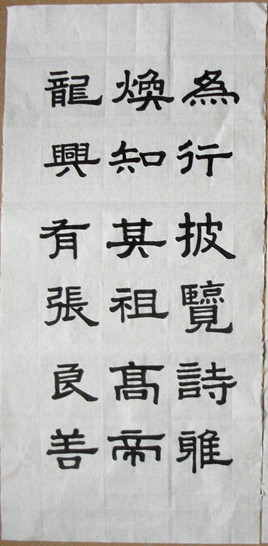 為行披覽詩雅
煥知其祖高帝
龍興有張良善